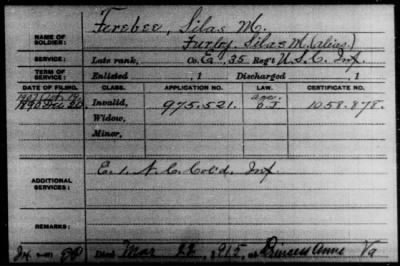 NAME OF SOLDIER: Ferebee, Silas M.
Furby, Silas M. (alias)
SERVICE: Late rank, Co. E, 35 Reg't U.S.C. Inf.
TERM OF SERVICE: Enlisted , 1 Discharged , 1
DATE OF FILING. CLASS. APPLICATION NO. LAW. CERTIFICATE NO.
1890 Dec. 20 Invalid, 975.521. 1058.878.
Widow,
Minor,
ADDITIONAL SERVICES: E. 1. N.C. Col'd. Inf.
REMARKS:
Died Mar 22, 1915, at Princess Anne Va